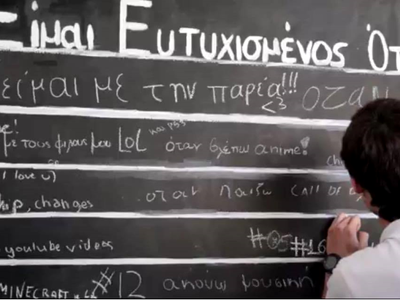 Είμαι Ευτυχισμένος Ότ
είμαι με την παρέα!!! <3 οταν
με τους φιλους μου LOL και PS3 όταν βλέπω anime!
I love u) οταν Παιζω CALL OF
ship, changes
youtube videos #05 #16
MINECRAFT #12 ακούω μουσική